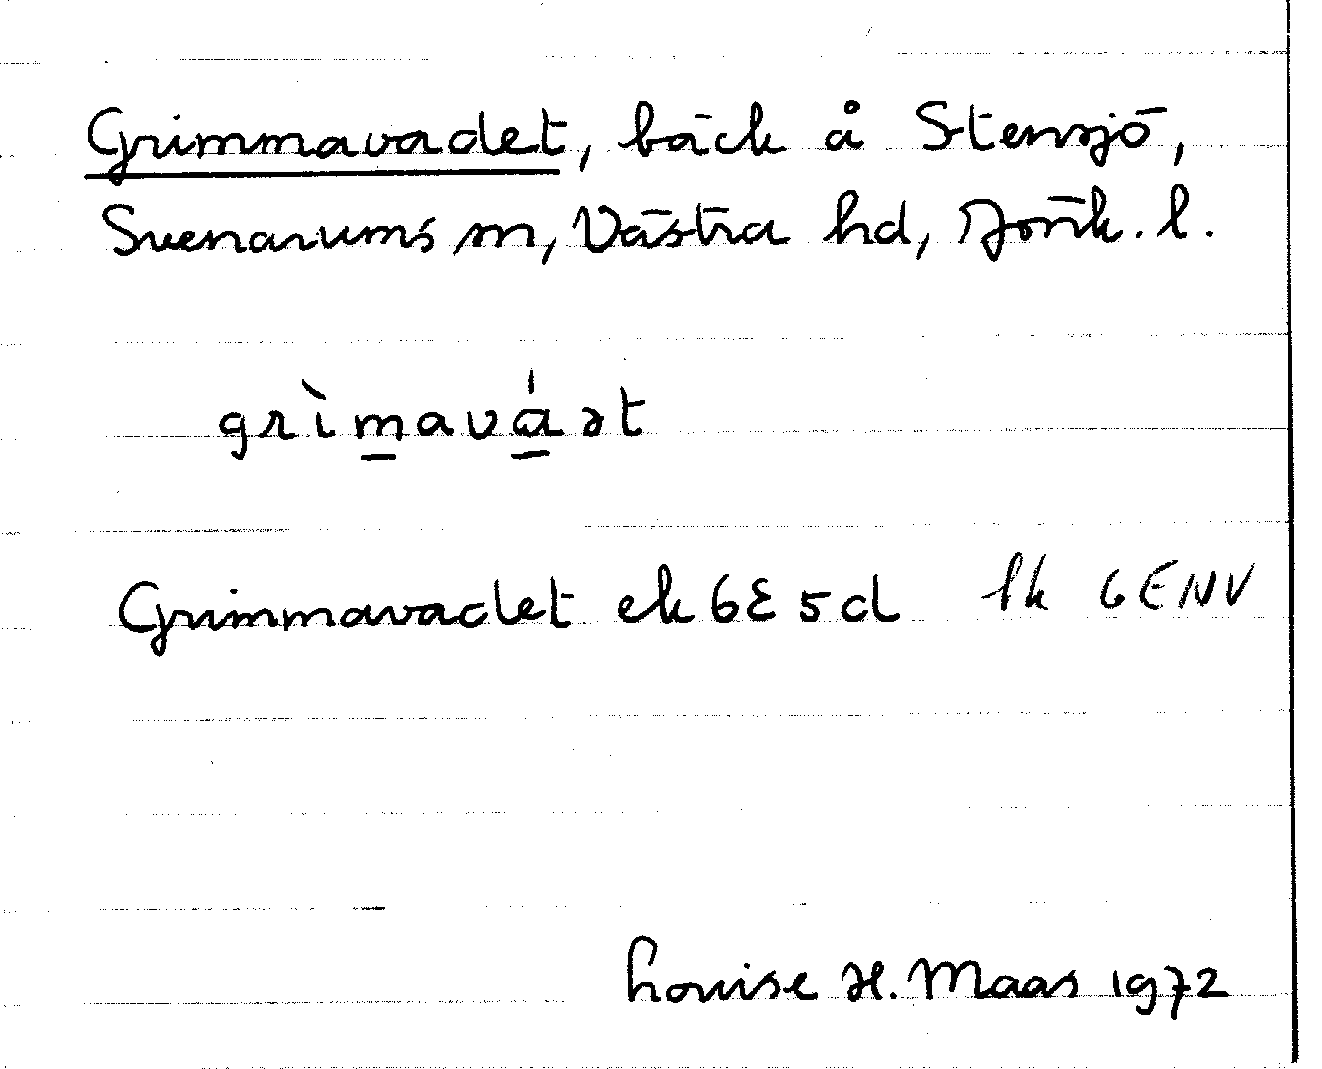 Grimmavadet, bäck å Stensjö,
Svenarums sn, Västra hd, Jönk. l.
grìmavá́ət
Grimmavadet ek 6E 5d lk 6ENV
Louise H. Maas 1972